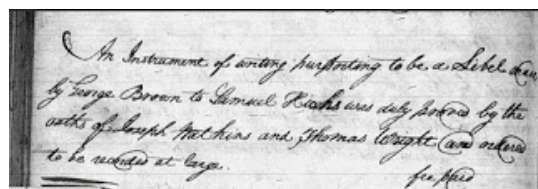 An Instrument of writing purporting to be a Libel
by George Brown to Samuel Hicks was duly proved by the
oaths of Joseph Watkins and Thomas Wright and ordered
to be recorded at large.
fee paid